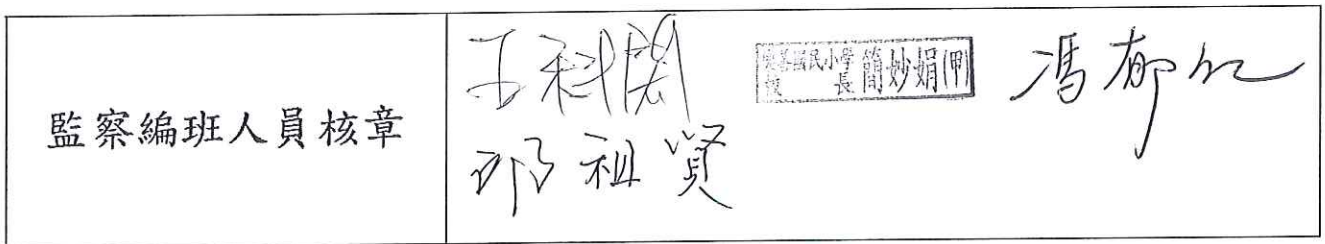 監察編班人員核章
王科閎
善國民小學
校長 簡妙娟(甲)
馮郁仁
邱祖賢